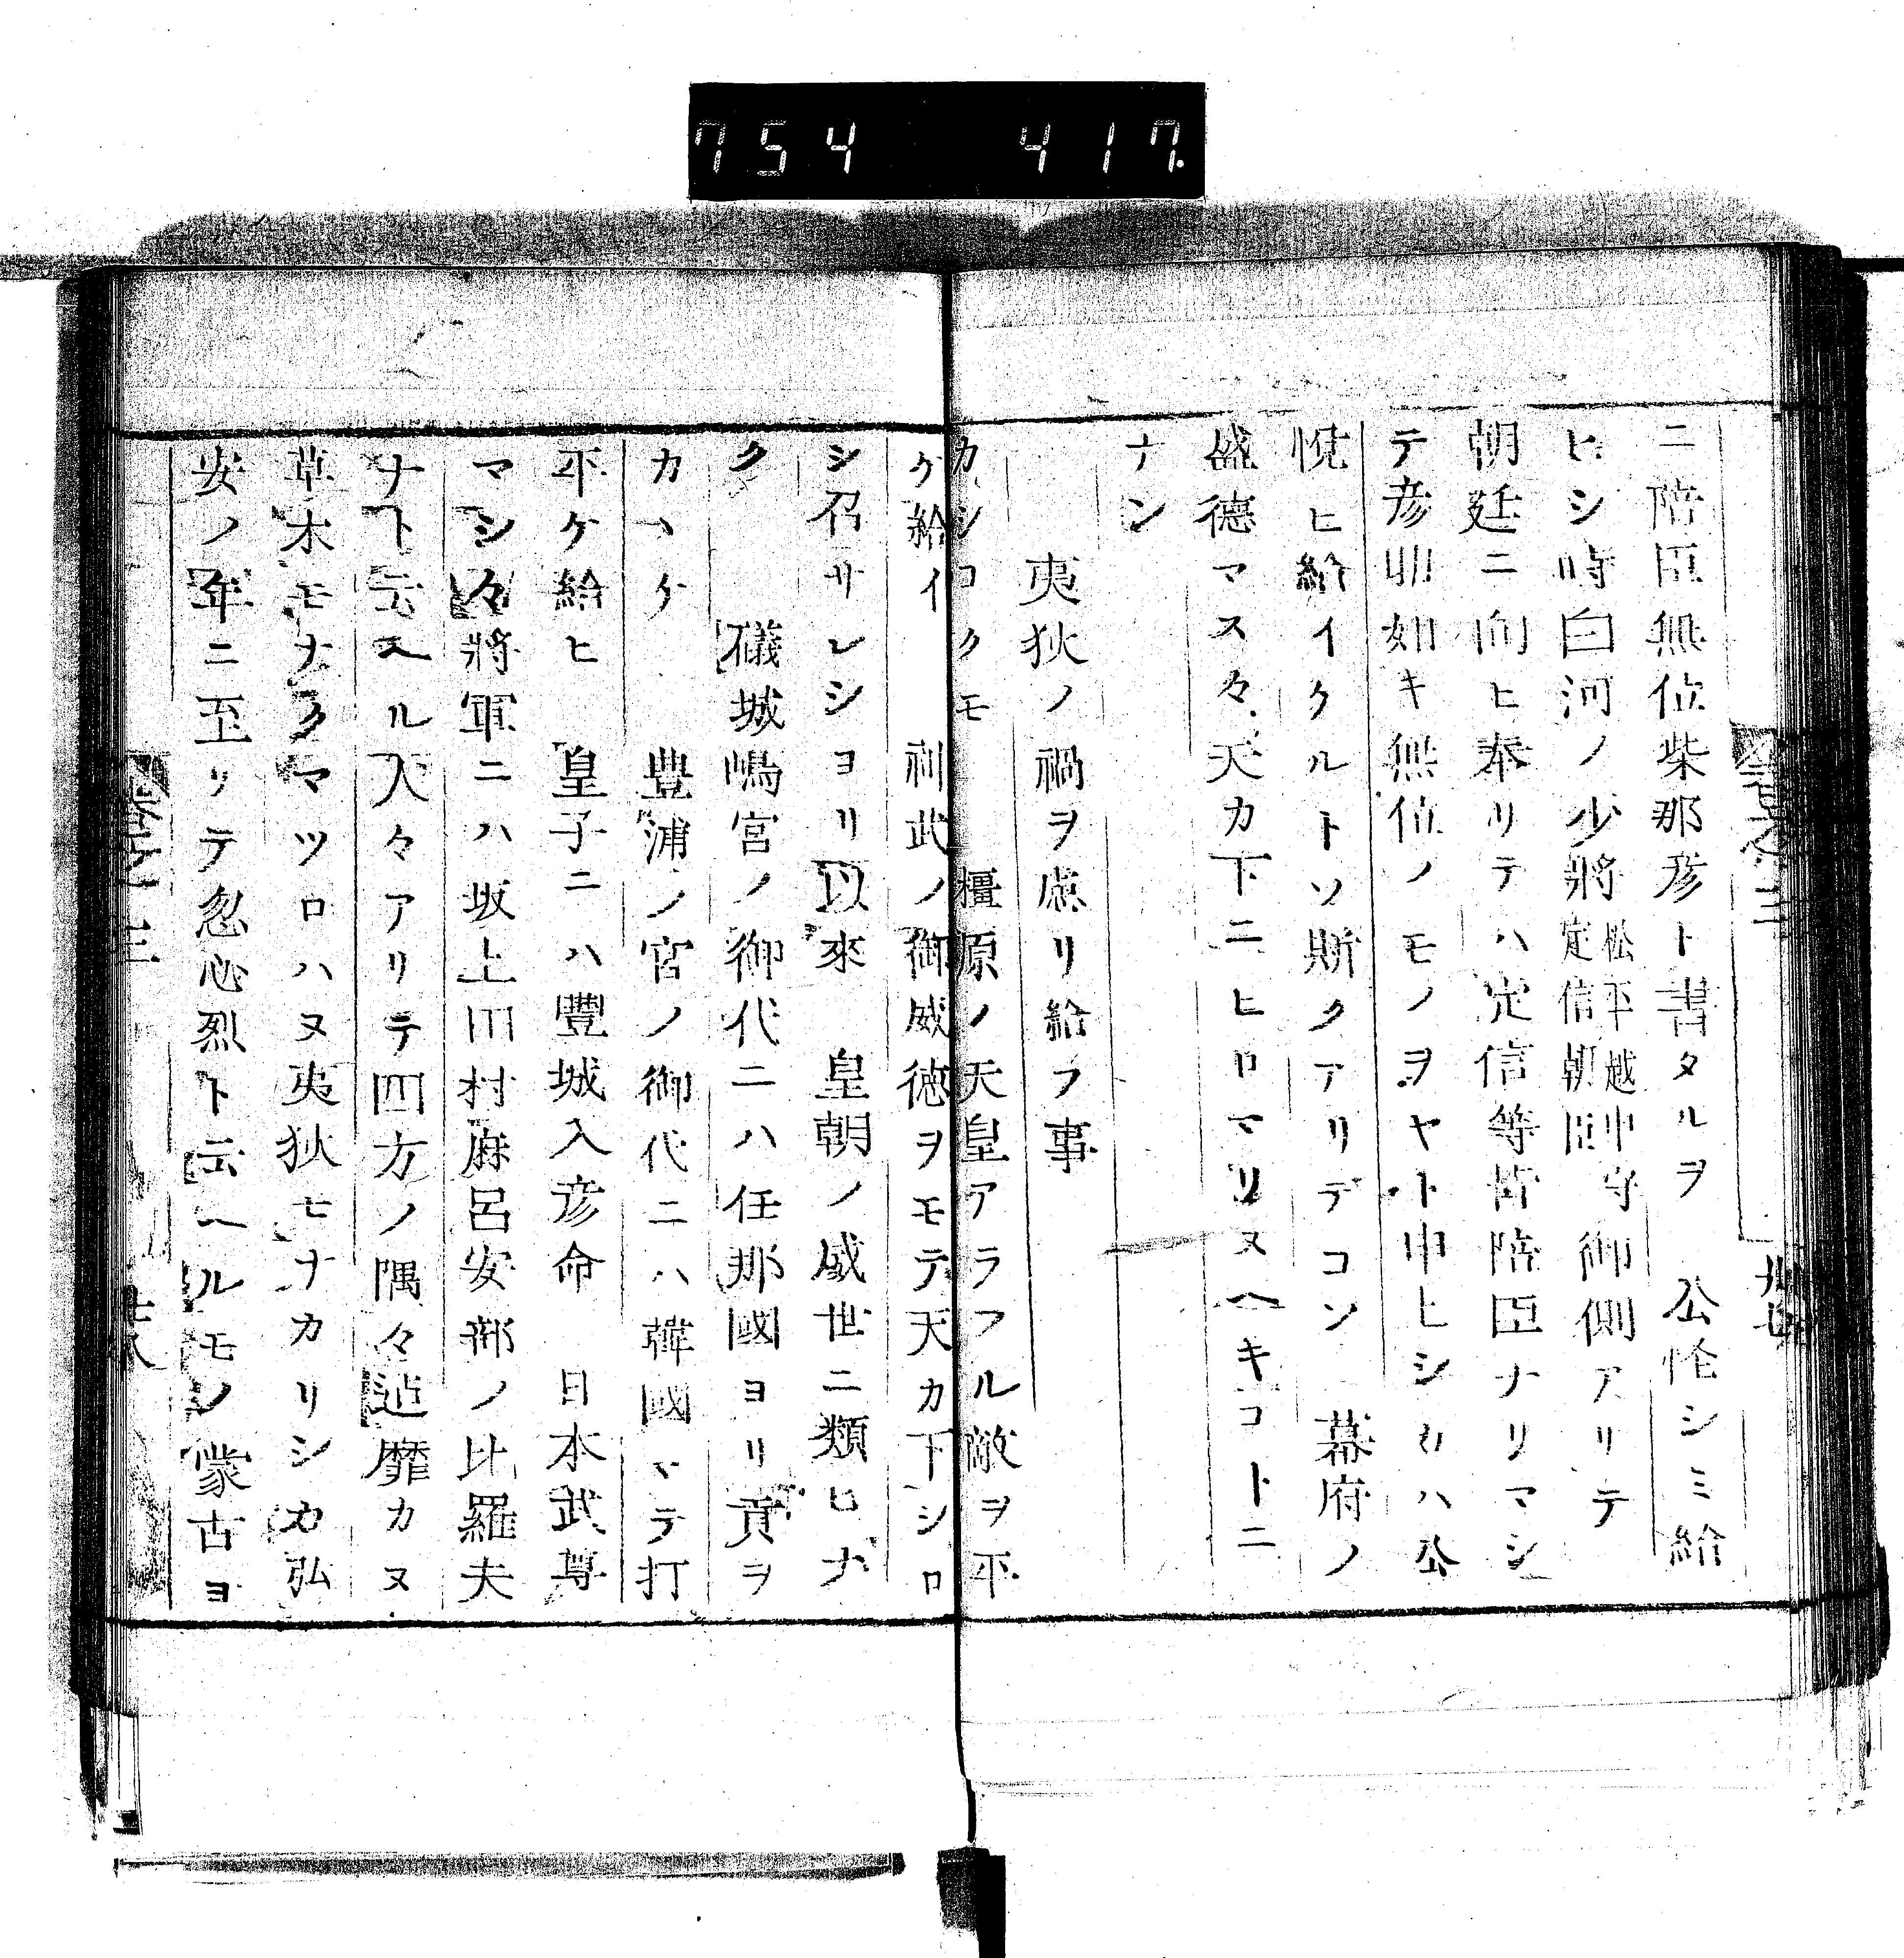 754 417.
ニ陪臣無位柴那彦ト書タルヲ 公恠シミ給
ヒシ時白河ノ少將松平越中守定信朝臣御側アリテ
朝廷ニ向ヒ奉リテハ定信等皆陪臣ナリマシ
テ彦如キ無位ノモノヲヤト申ヒシカハ公
悅ヒ給イクルトソ斯クアリデコソ 幕府ノ
盛德マス々天カ下ニヒロマリヌヘキコトニ
ナン
夷狄ノ禍ヲ慮リ給フ事
カシコクモ 橿原ノ天皇アラフル敵ヲ平
ケ給イ 神武ノ御威徳ヲモテ天カ下シロ
シ召サレシヨリ以來 皇朝ノ威世ニ類ヒナ
ク 礒城嶋宮ノ御代ニハ任那國ヨリ貢ヲ
カヽケ 豊浦ノ宮ノ御代ニハ韓國マテ打
平ケ給ヒ 皇子ニハ豐城入彦命 日本武尊
マシ々將軍ニハ坂上田村麻呂安部ノ比羅夫
ナト云ヘル人々アリテ四方ノ隅々迠靡カヌ
草木モナクマツロハヌ夷狄モナカリシカ弘
安ノ年ニ至リテ忽必烈ト云ヘルモノ蒙古ヨ